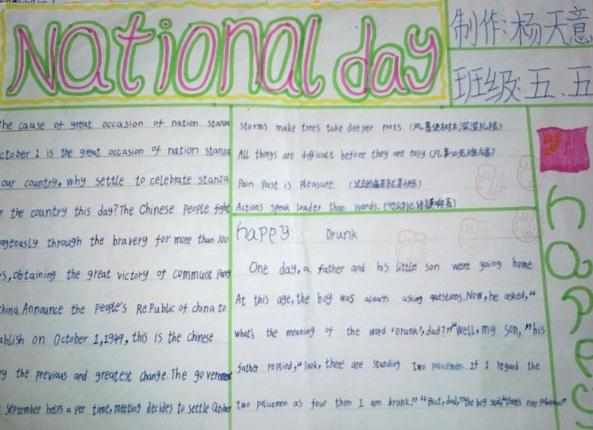 National day
制作:杨天意
班级:五.五
The cause of great occasion of nation stands
ctober 1 is the great occasion of nation stands
our country, why settle to celebrate stands
r the country this day? The Chinese People fight
ageously through the bravery for more than 100
s, obtaining the great victory of communist Party
China Announce the People's Republic of china to
ablish on October 1, 1949, this is the Chinese
ry the previous and greatest change. The government
September been a yer time, meeting decides to settle October
Storms make trees take deeper roots.
All things are difficult before they are easy
Pain Past is Pleasure.
Actions speak louder than words.
happy Drunk
One day, a father and his little son were going home
At this age, the boy was always asking questions. Now, he asked, "
what's the meaning of the word 'Drunk', dad?" "Well, my son," his
father replied, "look, there are standing two policemen. If I regard the
two policemen as four then I am drunk." "But, dad," the boy said
happy